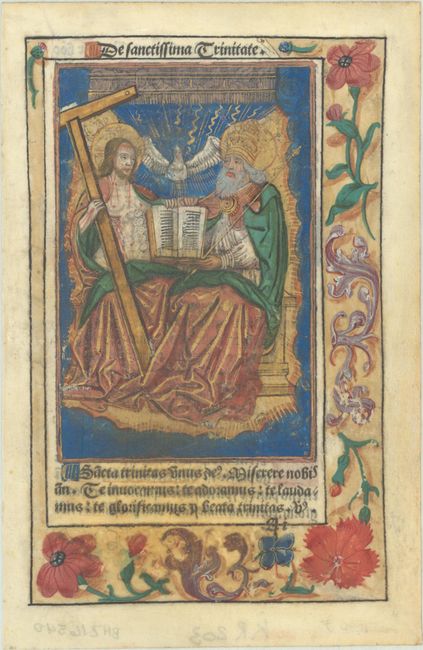 De sanctissima Trinitate.
Sācta trinitas vnus de⁹. Miserere nobis
an̄. Te inuocamus: te adoramus: te lauda
mus: te glorificamus p̄ beata trinitas. v̄
A i
KR 203